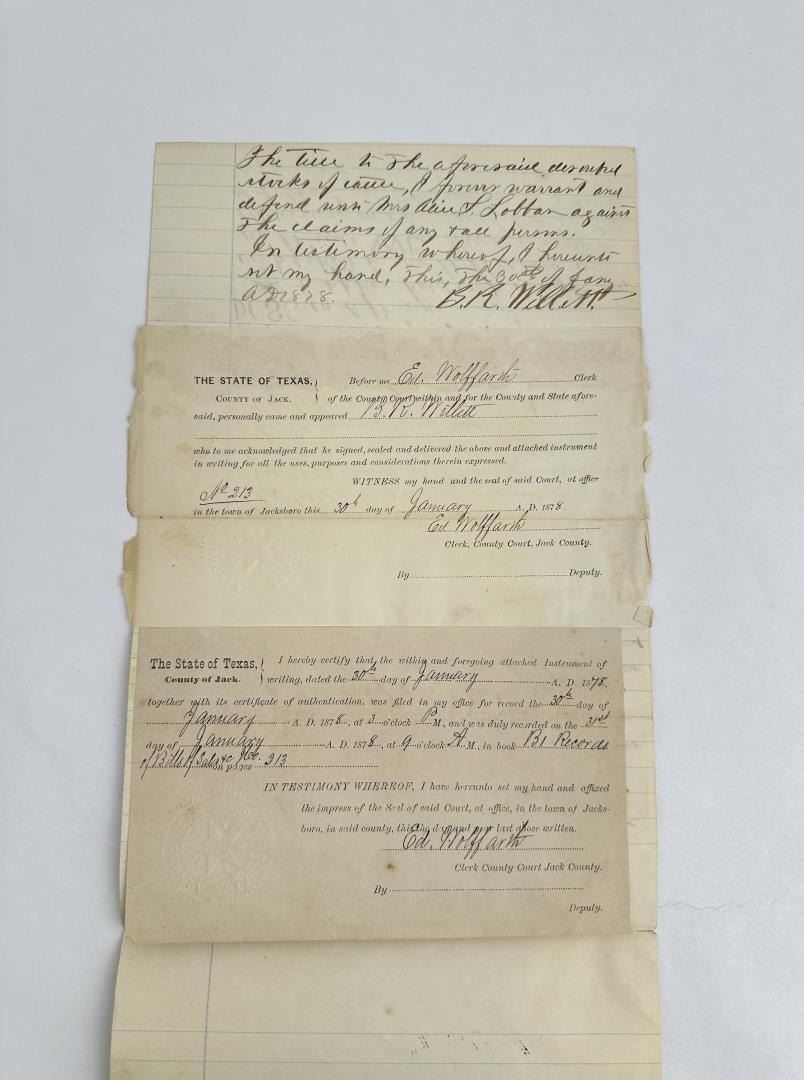 The title to the aforesaid described
stocks of cattle, I forever warrant and
defend unto Mrs Alice S. Lobban against
the claims of any & all persons.
In testimony whereof, I hereunto
set my hand, this, the 30th of Jany
AD 1878. B. R. Willett
THE STATE OF TEXAS, Before me Ed. Wolffarth Clerk
COUNTY OF JACK. of the County Court within and for the County and State afore-
said, personally came and appeared B. R. Willett
who to me acknowledged that he signed, sealed and delivered the above and attached instrument
in writing for all the uses, purposes and considerations therein expressed.
WITNESS my hand and the seal of said Court, at office
No 213
in the town of Jacksboro this 30th day of January A. D. 1878.
Ed Wolffarth
Clerk, County Court, Jack County.
By Deputy.
The State of Texas, I hereby certify that the within and foregoing attached Instrument of
County of Jack. writing, dated the 30th day of January A. D. 1878.
together with its certificate of authentication, was filed in my office for record the 30th day of
January A. D. 1878, at 3 o'clock P M., and was duly recorded on the 31st
day of January A. D. 1878, at 9 o'clock A M., in book B1 Records
of Bills of Sale &c No. 213
on pages
IN TESTIMONY WHEREOF, I have hereunto set my hand and affixed
the impress of the Seal of said Court, at office, in the town of Jacks-
boro, in said county, this the day and year last above written.
Ed. Wolffarth
Clerk County Court Jack County.
By
Deputy.